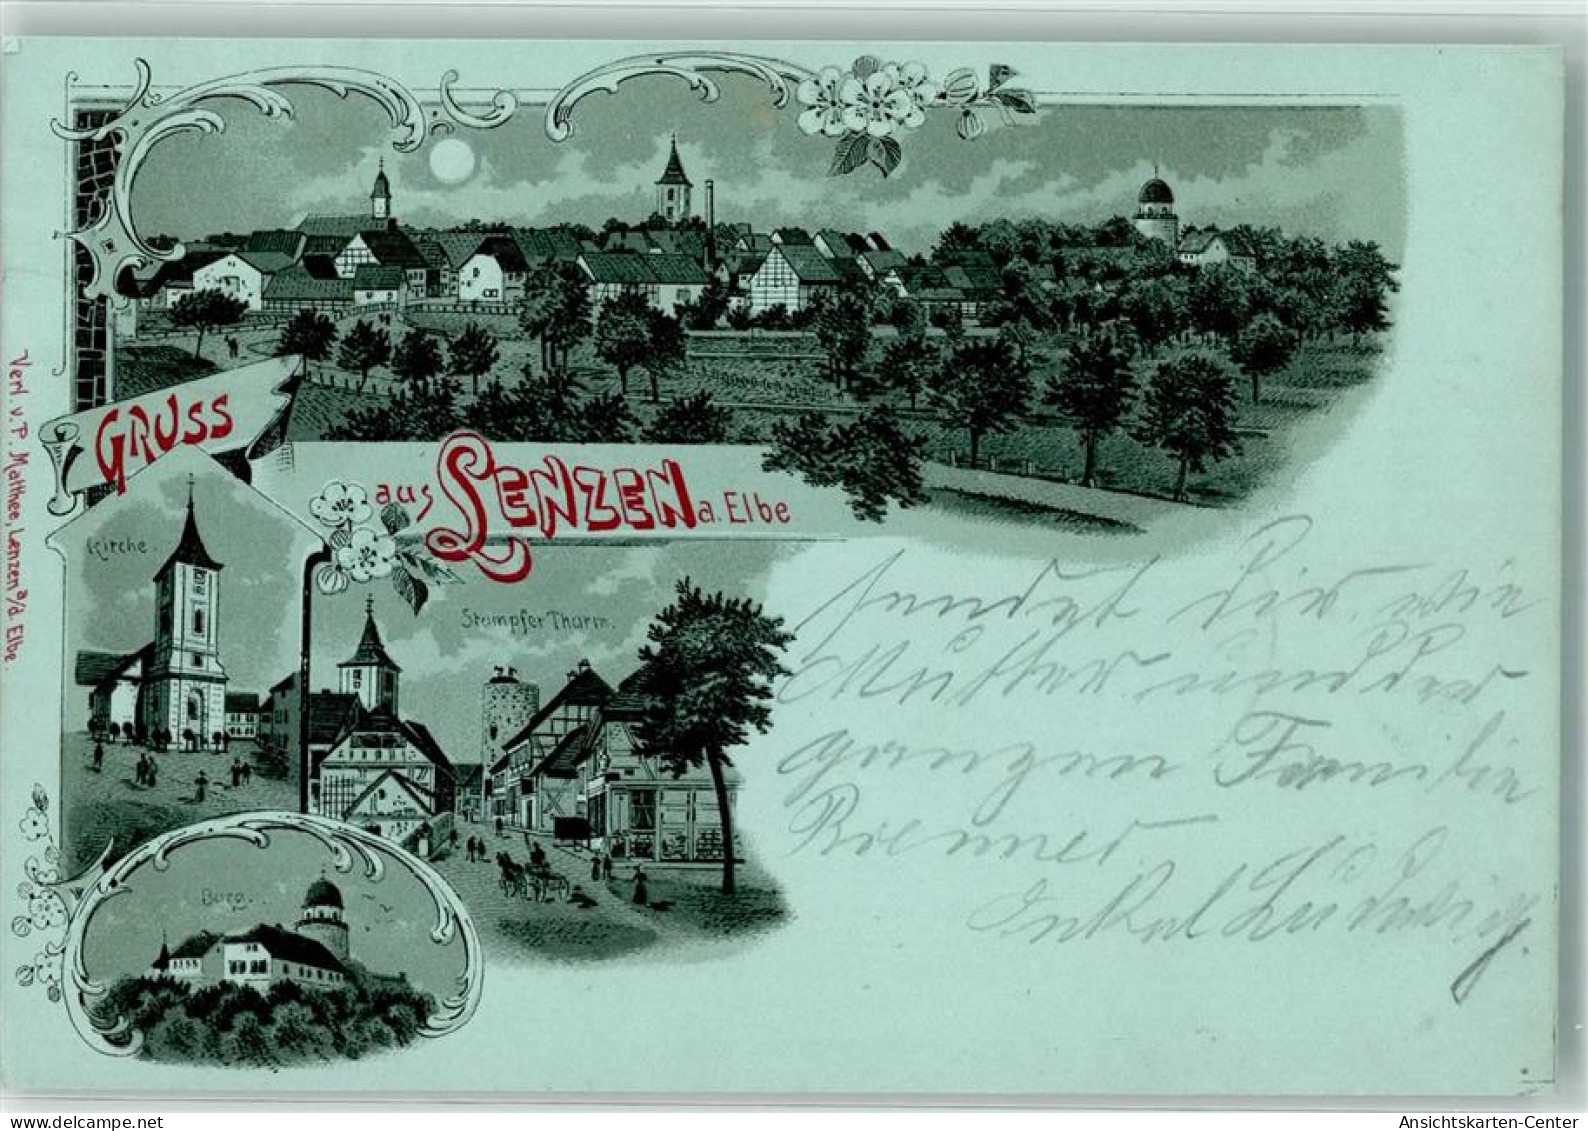 GRUSS
aus LENZEN a. Elbe
Kirche.
Stumpfer Thurm.
Burg.
Verl v. P. Matthee, Lenzen a/d. Elbe.
sendet Dir wie
Mutter und der
ganzen Familie
Brenner
Onkel Ludwig.
delcampe.net
Ansichtskarten-Center